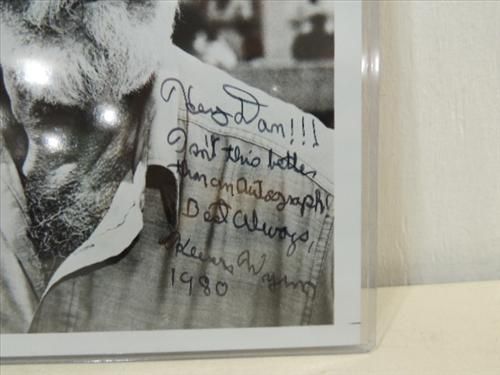 Hey Dan!!!
Isn't this better
than an Autograph!
Best Always,
Keenan Wynn
1980